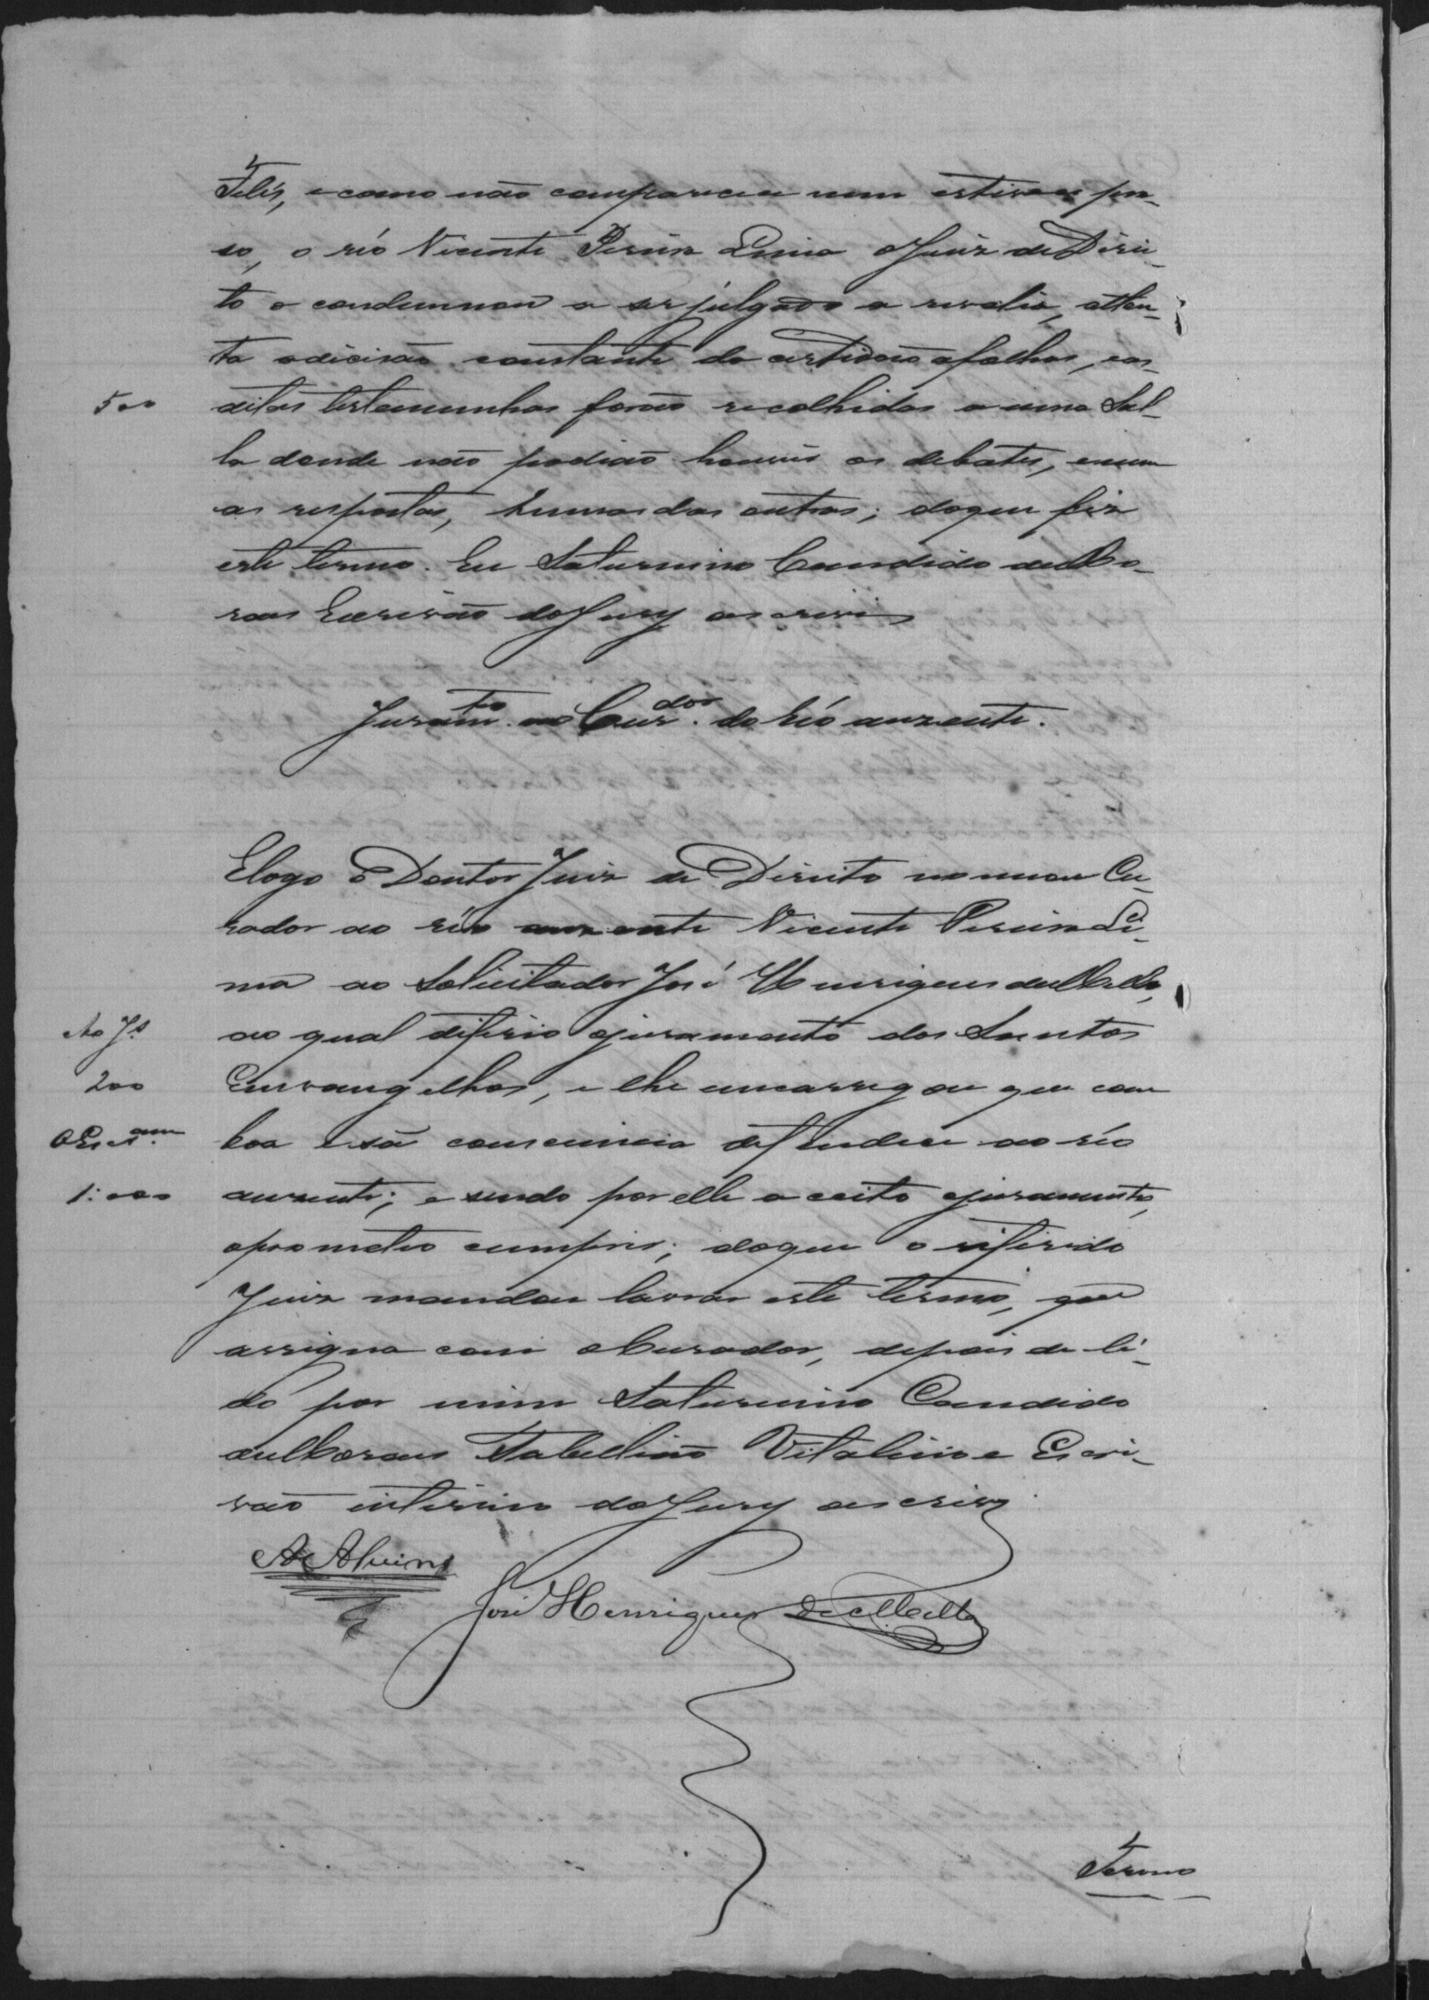 Felis, e como não compareceu nem estivesse pre-
so, o réo Vicente Pereira Lima o Juiz de Direi-
to o condemnou a ser julgado a revelia, atten-
ta a decisão constante da certidão a folhas, e as
500
ditas testemunhas forão recolhidas a uma Sal-
la donde não podião houvir os debates, e nem
as respostas, humas das outras; do que fiz
este termo. Eu Saturnino Candido de Mo-
raes Escrivão do Jury o escrevi
Juramto. ao Curdor. do Réo auzente.
E logo o Doutor Juiz de Direito nomeou Cu-
rador ao réo auzente Vicente Pereira Li-
ma ao Solicitador José Henriques de Mello,
Ao Js.
ao qual diferio o juramento dos Santos
200
Envangelhos, e lhe encarregou que com
boa e sã consciencia defendece ao réo
1:000
auzente; e sendo por elle aceito o juramento,
o prometeo cumprir; do que o referido
Juiz mandou lavrar este termo, que
assigna com o Curador, depois de li-
do por mim Saturnino Candido
de Moraes Tabellião Vitalicio e Escri-
vão interino do Jury o escrevi
José Henriques de Mello
Termo